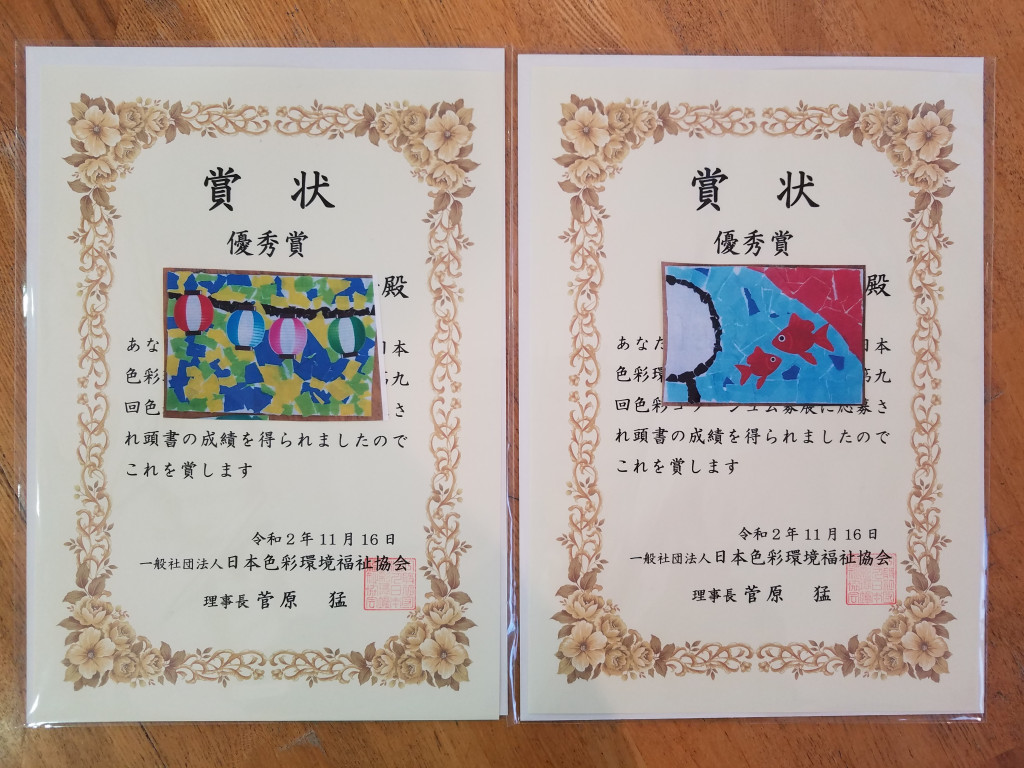 賞 状
優秀賞
殿
あな 日本
色彩 第九
回色 さ
れ頭書の成績を得られましたので
これを賞します
令和2年11月16日
一般社団法人日本色彩環境福祉協会
理事長 菅原 猛
賞 状
優秀賞
殿
あなた 日本
色彩環 第九
回色彩コラージュ公募展に応募さ
れ頭書の成績を得られましたので
これを賞します
令和2年11月16日
一般社団法人日本色彩環境福祉協会
理事長 菅原 猛